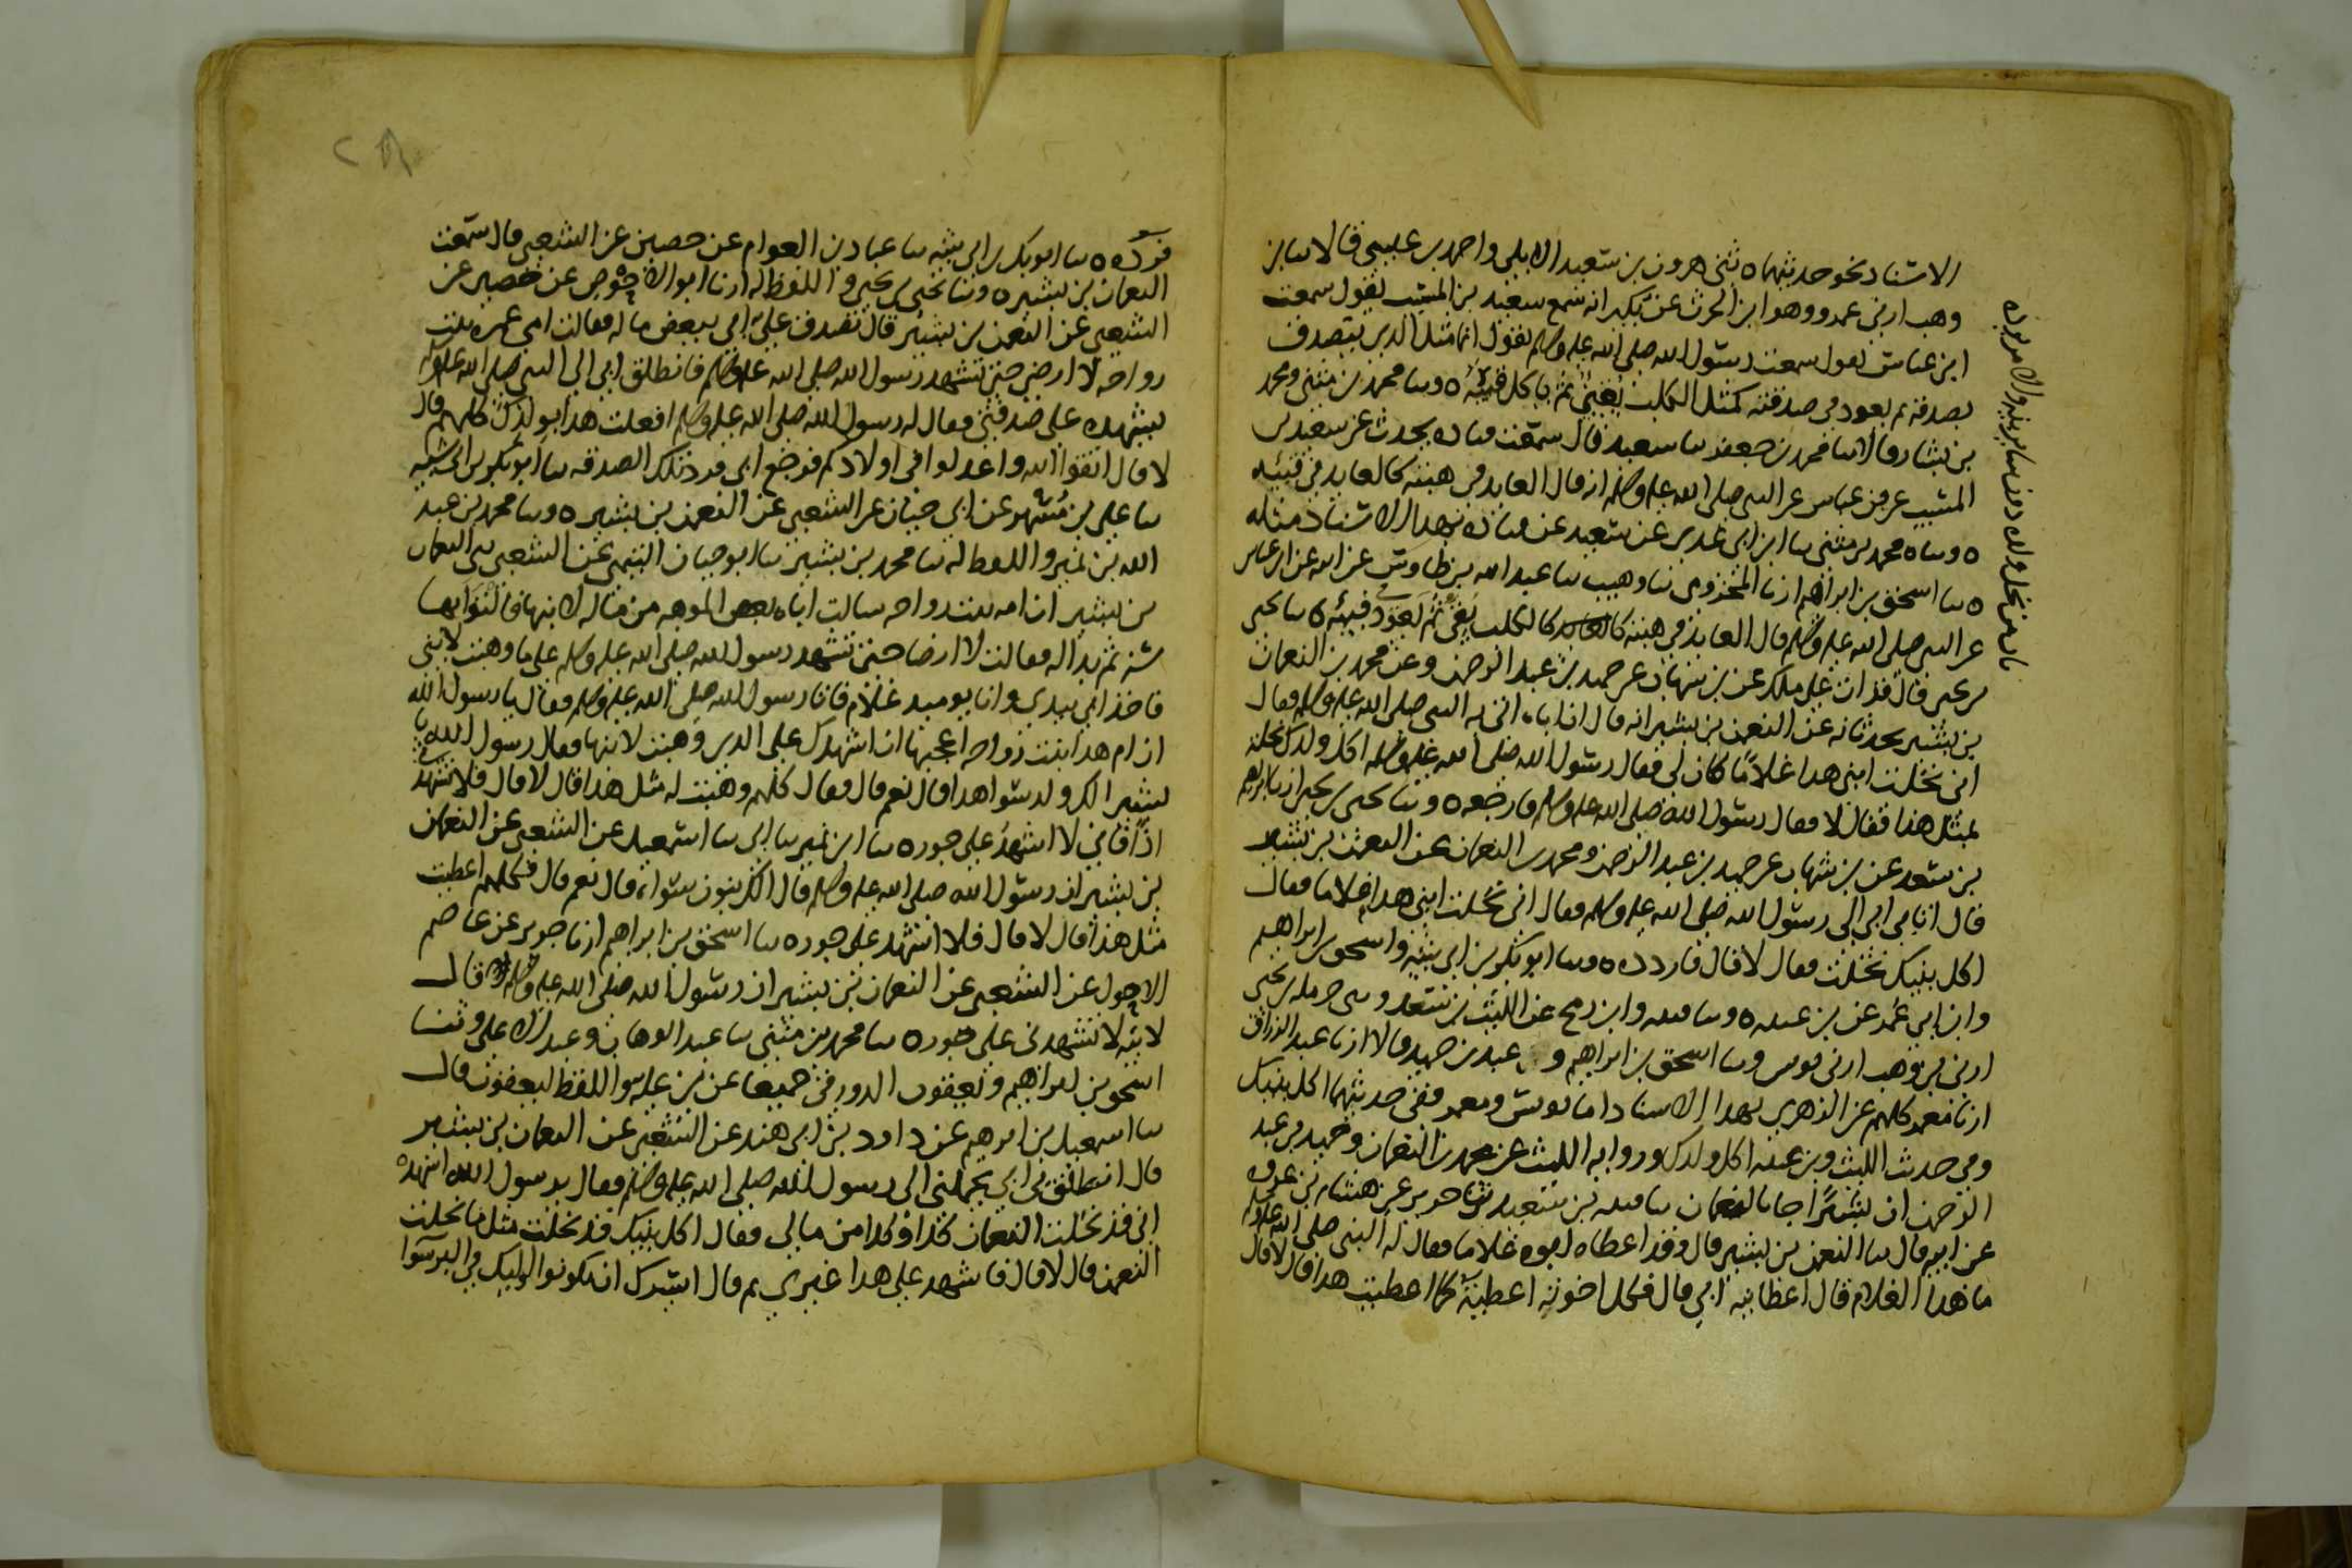 الاسناد نحو حديثهما ه ثنى هرون بن سعيد الايلى واحمد بن عيسى قالا سا بن
وهب ارنى عمرو وهو ابن الحرث عن بكير انه سمع سعيد بن المسيب يقول سمعت
ابن عباس يقول سمعت رسول الله صلى الله عليه وسلم يقول انما مثل الذى يتصدق
بصدقة ثم يعود فى صدقته كمثل الكلب يقىء ثم ياكل قيئه ه وسا محمد بن مثنى ومحمد
بن بشار قالا سا محمد بن جعفر سا سعبه قال سمعت قتاده يحدث عن سعيد بن
المسيب عن بن عباس عن النبى صلى الله عليه وسلم انه قال العايد فى هبته كالعايد فى قيئه
ه وساه محمد بن مثنى سا ابن ابى عدى عن سعيد عن قتاده بهذا الاسناد مثله
ه سا اسحق بن ابراهيم ارنا المخزومى سا وهيب سا عبد الله بن طاوس عن ابيه عن ابن عباس
عن النبى صلى الله عليه وسلم قال العايد فى هبته كالكلب يقىء ثم يعود فى قيئه ه سا يحيى
بن يحيى قال قرات على ملك عن بن شهاب عن حميد بن عبد الرحمن وعن محمد بن النعمان
بن بشير يحدثانه عن النعمن بن بشير انه قال ان اباه اتى به النبى صلى الله عليه وسلم فقال
انى نحلت ابنى هذا غلاما كان لى فقال رسول الله صلى الله عليه وسلم اكل ولدك نحلته
مثل هذا فقال لا فقال رسول الله صلى الله عليه وسلم فارجعه ه وسا يحيى بن يحيى ارنا ابرهيم
بن سعد عن بن شهاب عن حميد بن عبد الرحمن ومحمد بن النعمان عن النعمن بن بشير
قال اتا بى ابى الى رسول الله صلى الله عليه وسلم فقال انى نحلت ابنى هذا غلاما فقال
اكل بنيك نحلت فقال لا قال فاردده ه وسا ابو بكر بن ابى شيبه واسحق بن ابراهيم
وابن ابى عمر عن بن عيينه ه وسا قتيبه وابن رمح عن الليث بن سعد وثنى حرمله بن يحيى
ارنى بن وهب ارنى يونس وسا اسحق بن ابراهيم و عبد بن حميد قالا ارنا عبد الرزاق
ارنا معمر كلهم عن الزهرى بهذا الاسناد اما يونس ومعمر ففى حديثهما اكل بنيك
وفى حديث الليث وبن عيينه اكل ولدك ورواية الليث عن محمد بن النعمان وحميد بن عبد
الرحمن ان بشيرا جا بالنعمان سا قتيبه بن سعيد سا جرير عن هشام بن عروه
عن ابيه قال سا النعمن بن بشير قال وقد اعطاه ابوه غلاما فقال له النبى صلى الله عليه وسلم
ما هذا الغلام قال اعطانيه ابى قال فكل اخوته اعطيته كما اعطيت هذا قال لا قال
فرده ه سا ابو بكر بن ابى شيبه سا عباد بن العوام عن حصين عن الشعبى قال سمعت
النعمان بن بشير ه وسا يحيى بن يحيى واللفظ له ارنا ابو الاحوص عن حصين عن
الشعبى عن النعمن بن بشير قال تصدق على ابى ببعض ماله فقالت امى عمره بنت
رواحه لا ارضى حتى تشهد رسول الله صلى الله عليه وسلم فانطلق ابى الى النبى صلى الله عليه وسلم
ليشهده على صدقتى فقال له رسول الله صلى الله عليه وسلم افعلت هذا بولدك كلهم قال
لا قال اتقوا الله واعدلوا فى اولادكم فرجع ابى فرد تلك الصدقه سا ابو بكر بن ابى شيبه
سا على بن مسهر عن ابى حيان عن الشعبى عن النعمن بن بشير ه وسا محمد بن عبد
الله بن نمير واللفظ له سا محمد بن بشر سا ابو حيان التيمى عن الشعبى ثنى النعمان
بن بشير ان امه بنت رواحه سالت اباه بعض الموهبه من ماله لابنها فالتوا بها
سنه ثم بدا له فقالت لا ارضا حتى تشهد رسول الله صلى الله عليه وسلم على ما وهبت لابنى
فاخذ ابى بيدى وانا يوميد غلام فاتا رسول الله صلى الله عليه وسلم فقال يا رسول الله
ان ام هذا بنت رواحه اعجبها ان اشهدك على الذى وهبت لابنها فقال رسول الله يا
بشير الك ولد سوا هذا قال نعم قال فقال كلهم وهبت له مثل هذا قال لا قال فلا تشهدنى
اذا فانى لا اشهد على جور ه سا ابن نمير سا ابى سا اسمعيل عن الشعبى عن النعمان
بن بشير ان رسول الله صلى الله عليه وسلم قال الك بنون سواه قال نعم قال فكلهم اعطيت
مثل هذا قال لا قال فلا اشهد على جور ه سا اسحق بن ابراهيم ارنا جرير عن عاصم
الاحول عن الشعبى عن النعمان بن بشير ان رسول الله صلى الله عليه وسلم قال
لابيه لا تشهدنى على جور ه سا محمد بن مثنى سا عبد الوهاب وعبد الاعلى وثنا
اسحق بن ابراهيم ويعقوب الدورقى جميعا عن بن عليه واللفظ ليعقوب قال
سا اسمعيل بن ابرهيم عن داود بن ابى هند عن الشعبى عن النعمان بن بشير
قال انطلق بى ابى يحملنى الى رسول الله صلى الله عليه وسلم فقال يرسول الله اشهد
انى قد نحلت النعمان كذا وكذا من مالى فقال اكل بنيك قد نحلت مثل ما نحلت
النعمن قال لا قال فاشهد على هذا غيرى ثم قال ايسرك ان يكونوا اليك فى البر سوا